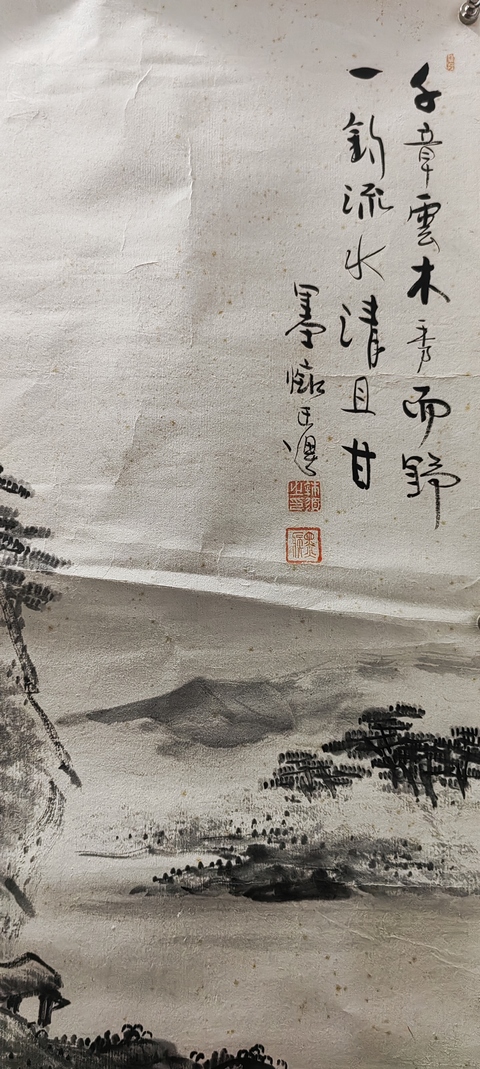 千章雲木秀而野
一釣流水清且甘
墨